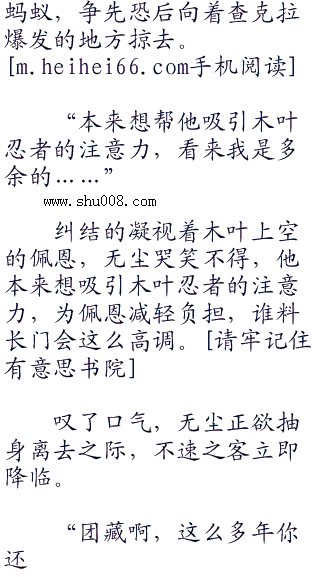 蚂蚁，争先恐后向着查克拉
爆发的地方掠去。
[m.heihei66.com手机阅读]
“本来想帮他吸引木叶
忍者的注意力，看来我是多
余的……”
www.shu008.com
纠结的凝视着木叶上空
的佩恩，无尘哭笑不得，他
本来想吸引木叶忍者的注意
力，为佩恩减轻负担，谁料
长门会这么高调。[请牢记住
有意思书院]
叹了口气，无尘正欲抽
身离去之际，不速之客立即
降临。
“团藏啊，这么多年你
还